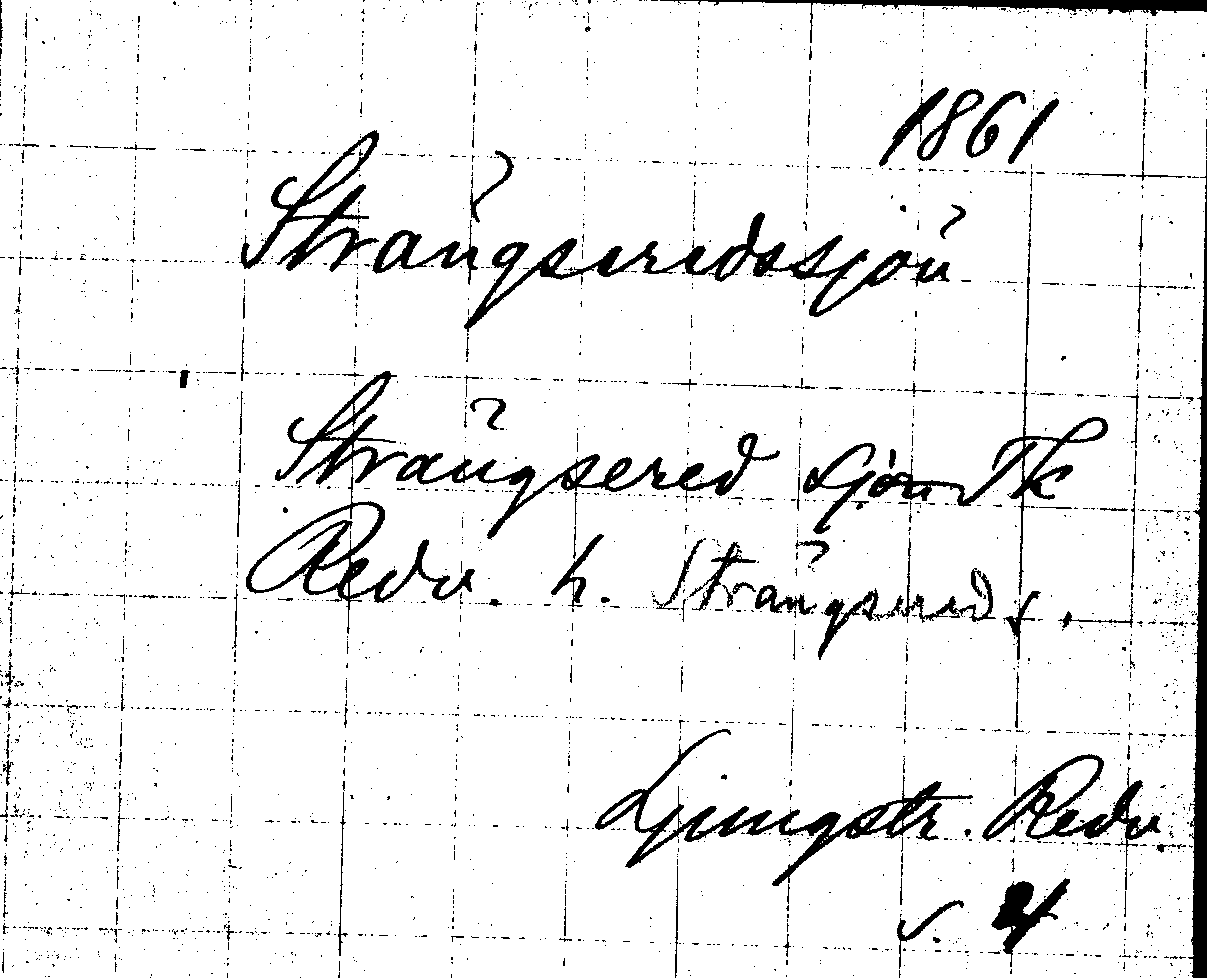 1861
Strängseredssjön
Strängsered sjön Tk
Redv. h. Strängsered s.
Ljungstr. Redv.
s. 4